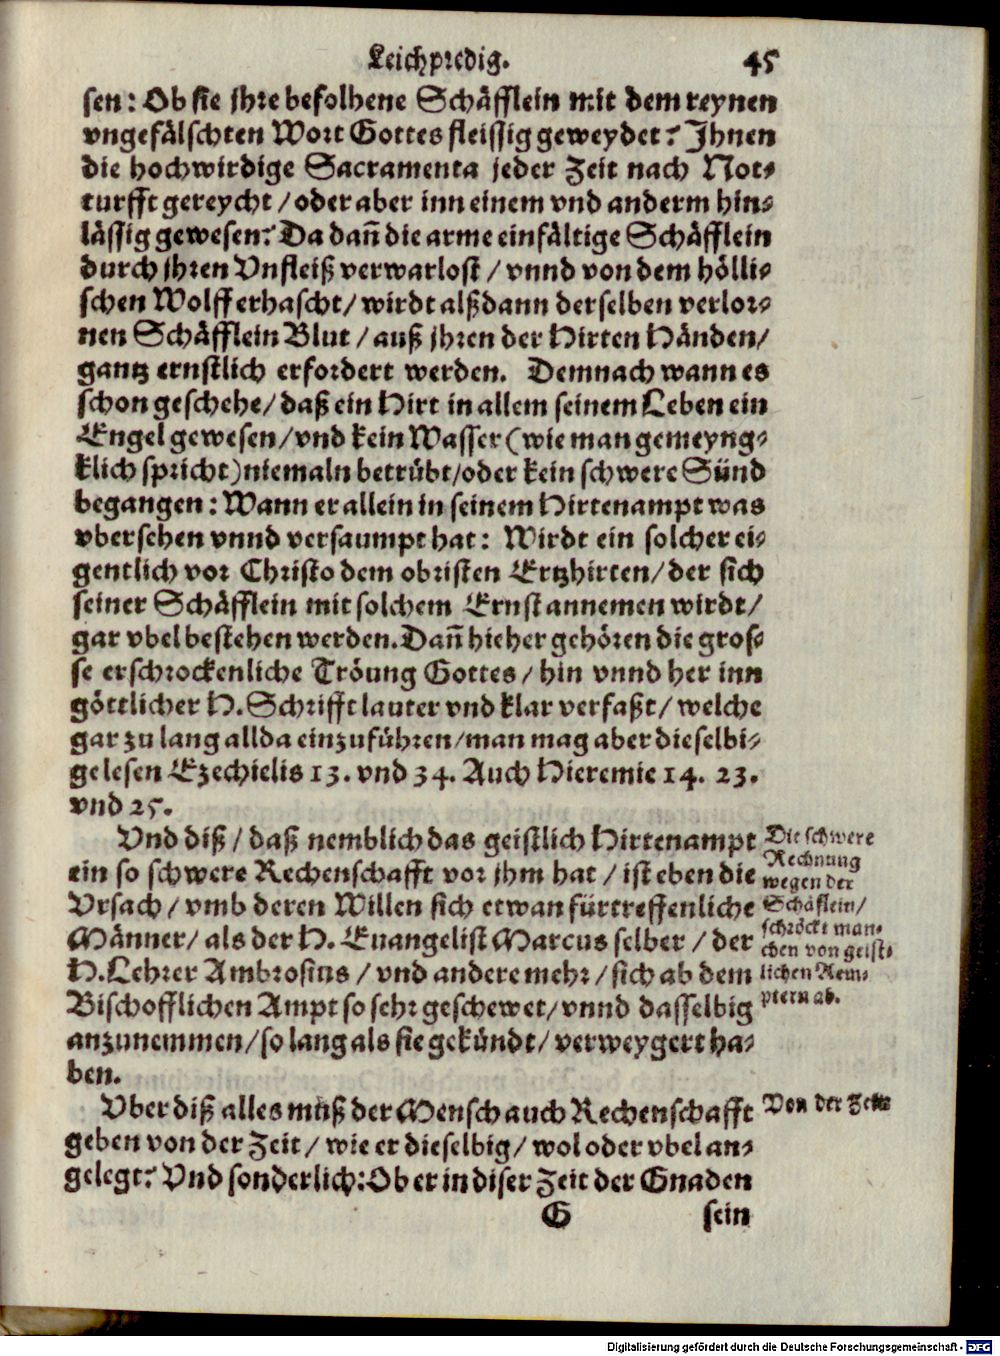 Leichpredig. 45
sen: Ob sie jhre befolhene Schäfflein mit dem reynen
vngefälschten Wort Gottes fleissig geweydet? Jhnen
die hochwirdige Sacramenta jeder Zeit nach Not-
turfft gereycht / oder aber inn einem vnd anderm hin-
lässig gewesen? Da dañ die arme einfältige Schäfflein
durch jhren Vnfleiß verwarlost / vnnd von dem hölli-
schen Wolff erhascht / wirdt alßdann derselben verlor-
nen Schäfflein Blut / auß jhren der Hirten Händen /
gantz ernstlich erfordert werden. Demnach wann es
schon geschehe / daß ein Hirt in allem seinem Leben ein
Engel gewesen / vnd kein Wasser (wie man gemeyng-
klich spricht) niemaln betrübt / oder kein schwere Sünd
begangen: Wann er allein in seinem Hirtenampt was
vbersehen vnnd versaumpt hat: Wirdt ein solcher ei-
gentlich vor Christo dem obristen Ertzhirten / der sich
seiner Schäfflein mit solchem Ernst annemen wirdt /
gar vbel bestehen werden. Dañ hieher gehören die gros-
se erschrockenliche Tröung Gottes / hin vnnd her inn
göttlicher H. Schrifft lauter vnd klar verfaßt / welche
gar zu lang allda einzuführen / man mag aber dieselbi-
ge lesen Ezechielis 13. vnd 34. Auch Hieremie 14. 23.
vnd 25.
Vnd diß / daß nemblich das geistlich Hirtenampt
ein so schwere Rechenschafft vor jhm hat / ist eben die
Vrsach / vmb deren Willen sich etwan fürtreffenliche
Männer / als der H. Euangelist Marcus selber / der
H. Lehrer Ambrosius / vnd andere mehr / sich ab dem
Bischofflichen Ampt so sehr geschewet / vnnd dasselbig
anzunemmen / so lang als sie gekündt / verweygert ha-
ben.
Die schwere
Rechnung
wegen der
Schäflein /
schröckt man-
chen von geist-
lichen Aem-
ptern ab.
Vber diß alles muß der Mensch auch Rechenschafft
geben von der Zeit / wie er dieselbig / wol oder vbel an-
gelegt? Vnd sonderlich: Ob er in diser Zeit der Gnaden
Von der Zeit.
G sein
Digitalisierung gefördert durch die Deutsche Forschungsgemeinschaft - DFG